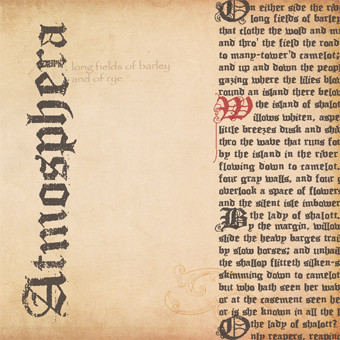 Atmosphera
long fields of barley
and of rye
On either side the riv
long fields of barley
that clothe the wold and m
and thro' the field the road
to many-tower'd camelot;
and up and down the peop
gazing where the lilies blow
round an island there belo
the island of shalot
Willows whiten, aspe
little breezes dusk and shi
thro the wave that runs fo
by the island in the river
flowing down to camelot.
four gray walls, and four g
overlook a space of flowers
and the silent isle imbower
the lady of shalott.
By the margin, willow
slide the heavy barges trai
by slow horses; and unhail
the shallop flitteth silken-s
skimming down to camelot
but who hath seen her wav
or at the casement seen he
or is she known in all the l
the lady of shalott?
Only reapers, reaping